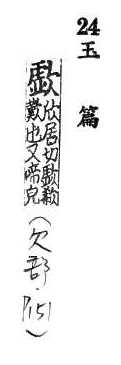 24玉篇
歔欣居切歔欷
歎也又啼皃
（欠部·P151）